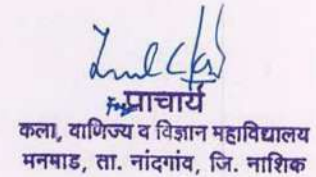 प्राचार्य
कला, वाणिज्य व विज्ञान महाविद्यालय
मनमाड, ता. नांदगांव, जि. नाशिक